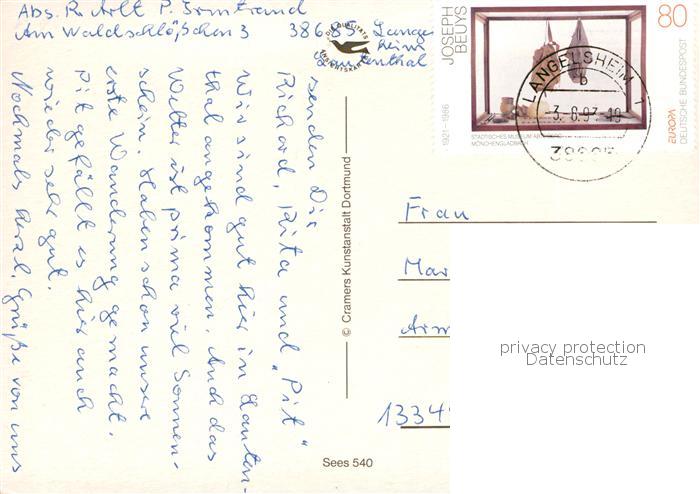 Abs. R. Arlt P. Irmtraud
Am Waldschlößchen 3 38685 Langels
heim
Lautenthal
senden Dir
Richard, Rita und "Pit"
Wir sind gut hier in Lauten-
thal angekommen. Auch das
Wetter ist prima viel Sonnen-
schein. Haben schon unsere
erste Wanderung gemacht.
Pit gefällt es hier auch
wieder sehr gut.
Nochmals herzl. Grüße von uns
DIE QUALITÄTS
ANSICHTSKARTE
© Cramers Kunstanstalt Dortmund
Sees 540
JOSEPH
BEUYS
1921–1986
80
STÄDTISCHES MUSEUM ABT
MÖNCHENGLADBACH
EUROPA
DEUTSCHE BUNDESPOST
LANGELSHEIM 1
b
-3.-8.93-19
38685
Frau
Mar
Arm
1334
privacy protection
Datenschutz